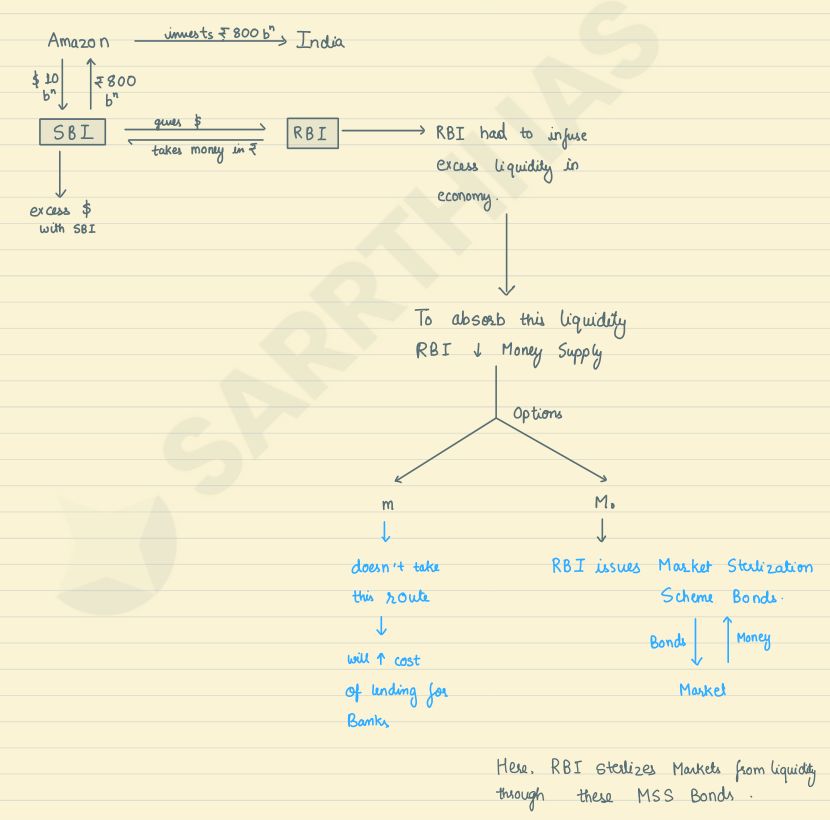 Amazon invests ₹800 bⁿ India
$10 bⁿ
₹800 bⁿ
SBI gives $ RBI
takes money in ₹
excess $
with SBI
RBI had to infuse
excess liquidity in
economy.
To absorb this liquidity
RBI ↓ Money Supply
Options
m
doesn't take
this route
will ↑ cost
of lending for
Banks
M₀
RBI issues Market Sterlization
Scheme Bonds.
Bonds Money
Market
Here, RBI sterlizes Markets from liquidity
through these MSS Bonds.
SARRTHI IAS